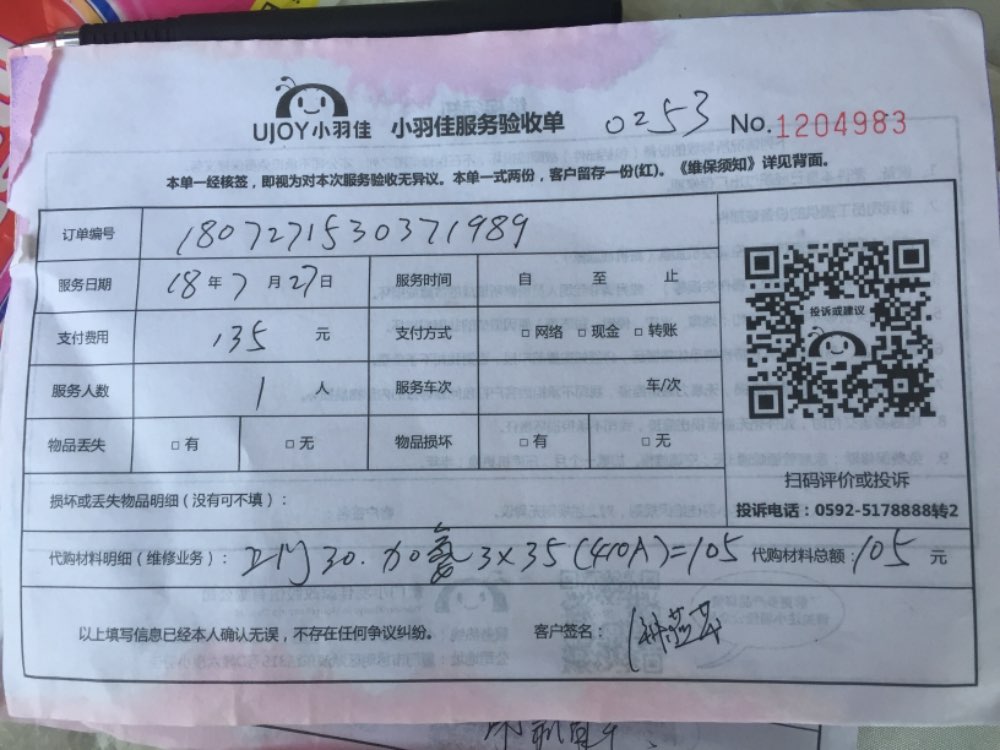 UJOY小羽佳 小羽佳服务验收单 0253 No.1204983
本单一经核签，即视为对本次服务验收无异议。本单一式两份，客户留存一份(红)。《维保须知》详见背面。
订单编号 1807271530371989
服务日期 18年7月27日 服务时间 自 至 止
支付费用 135 元 支付方式 □网络 □现金 □转账
服务人数 1 人 服务车次 车/次
物品丢失 □有 □无 物品损坏 □有 □无
投诉或建议
扫码评价或投诉
投诉电话：0592-5178888转2
损坏或丢失物品明细（没有可不填）：
代购材料明细（维修业务）： 30.加氟3×35(410A)=105 代购材料总额：105元
以上填写信息已经本人确认无误，不存在任何争议纠纷。 客户签名：